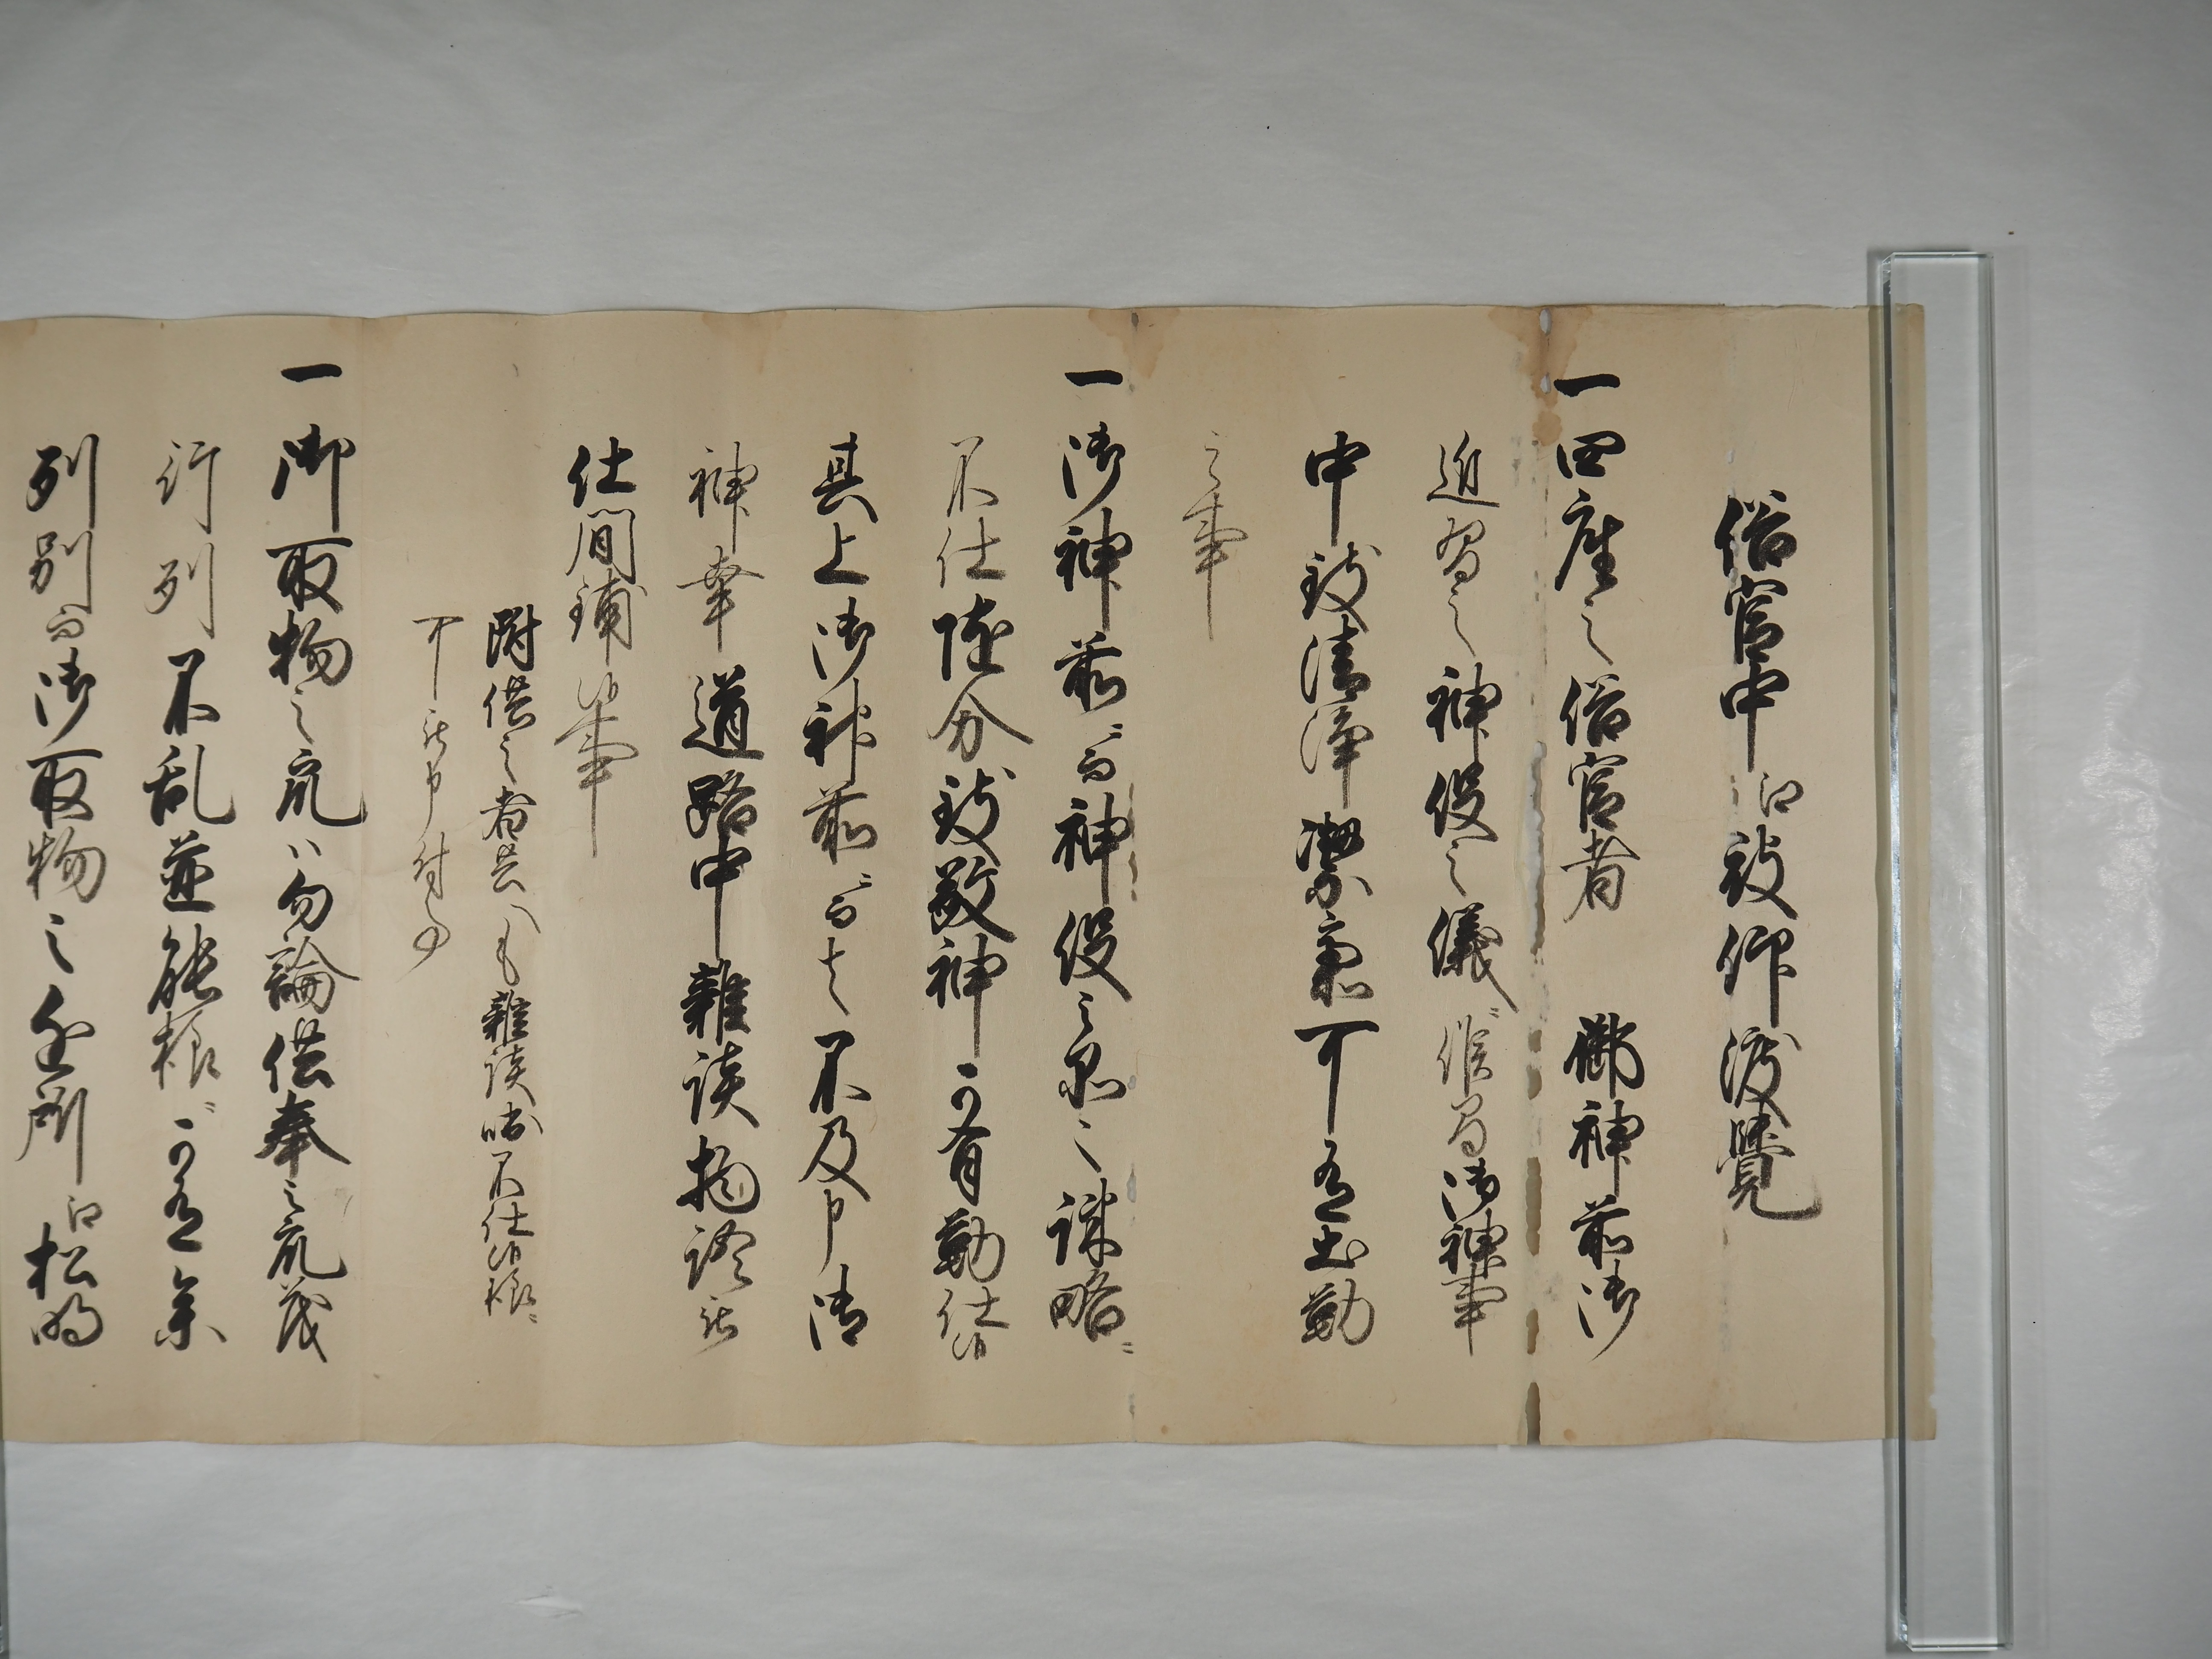 俗官中江被仰渡覚
一四座之俗官者　御神前御
近習之神役之儀ニ候得者御神事
中致清浄潔斎可有出勤
之事
一御神前ニ而神役之衆ハ疎略ニ
不仕随分致敬神可有勤仕候
其上御神前ニ而者不及申御
神幸道路中雑談抔諸事
仕間鋪候事
附供之者共へも雑談咄不仕候様ニ
可被申付事
一御取物之衆ハ勿論供奉之衆茂
行列不乱並能様ニ可有参
列別而御取物之企所江松明